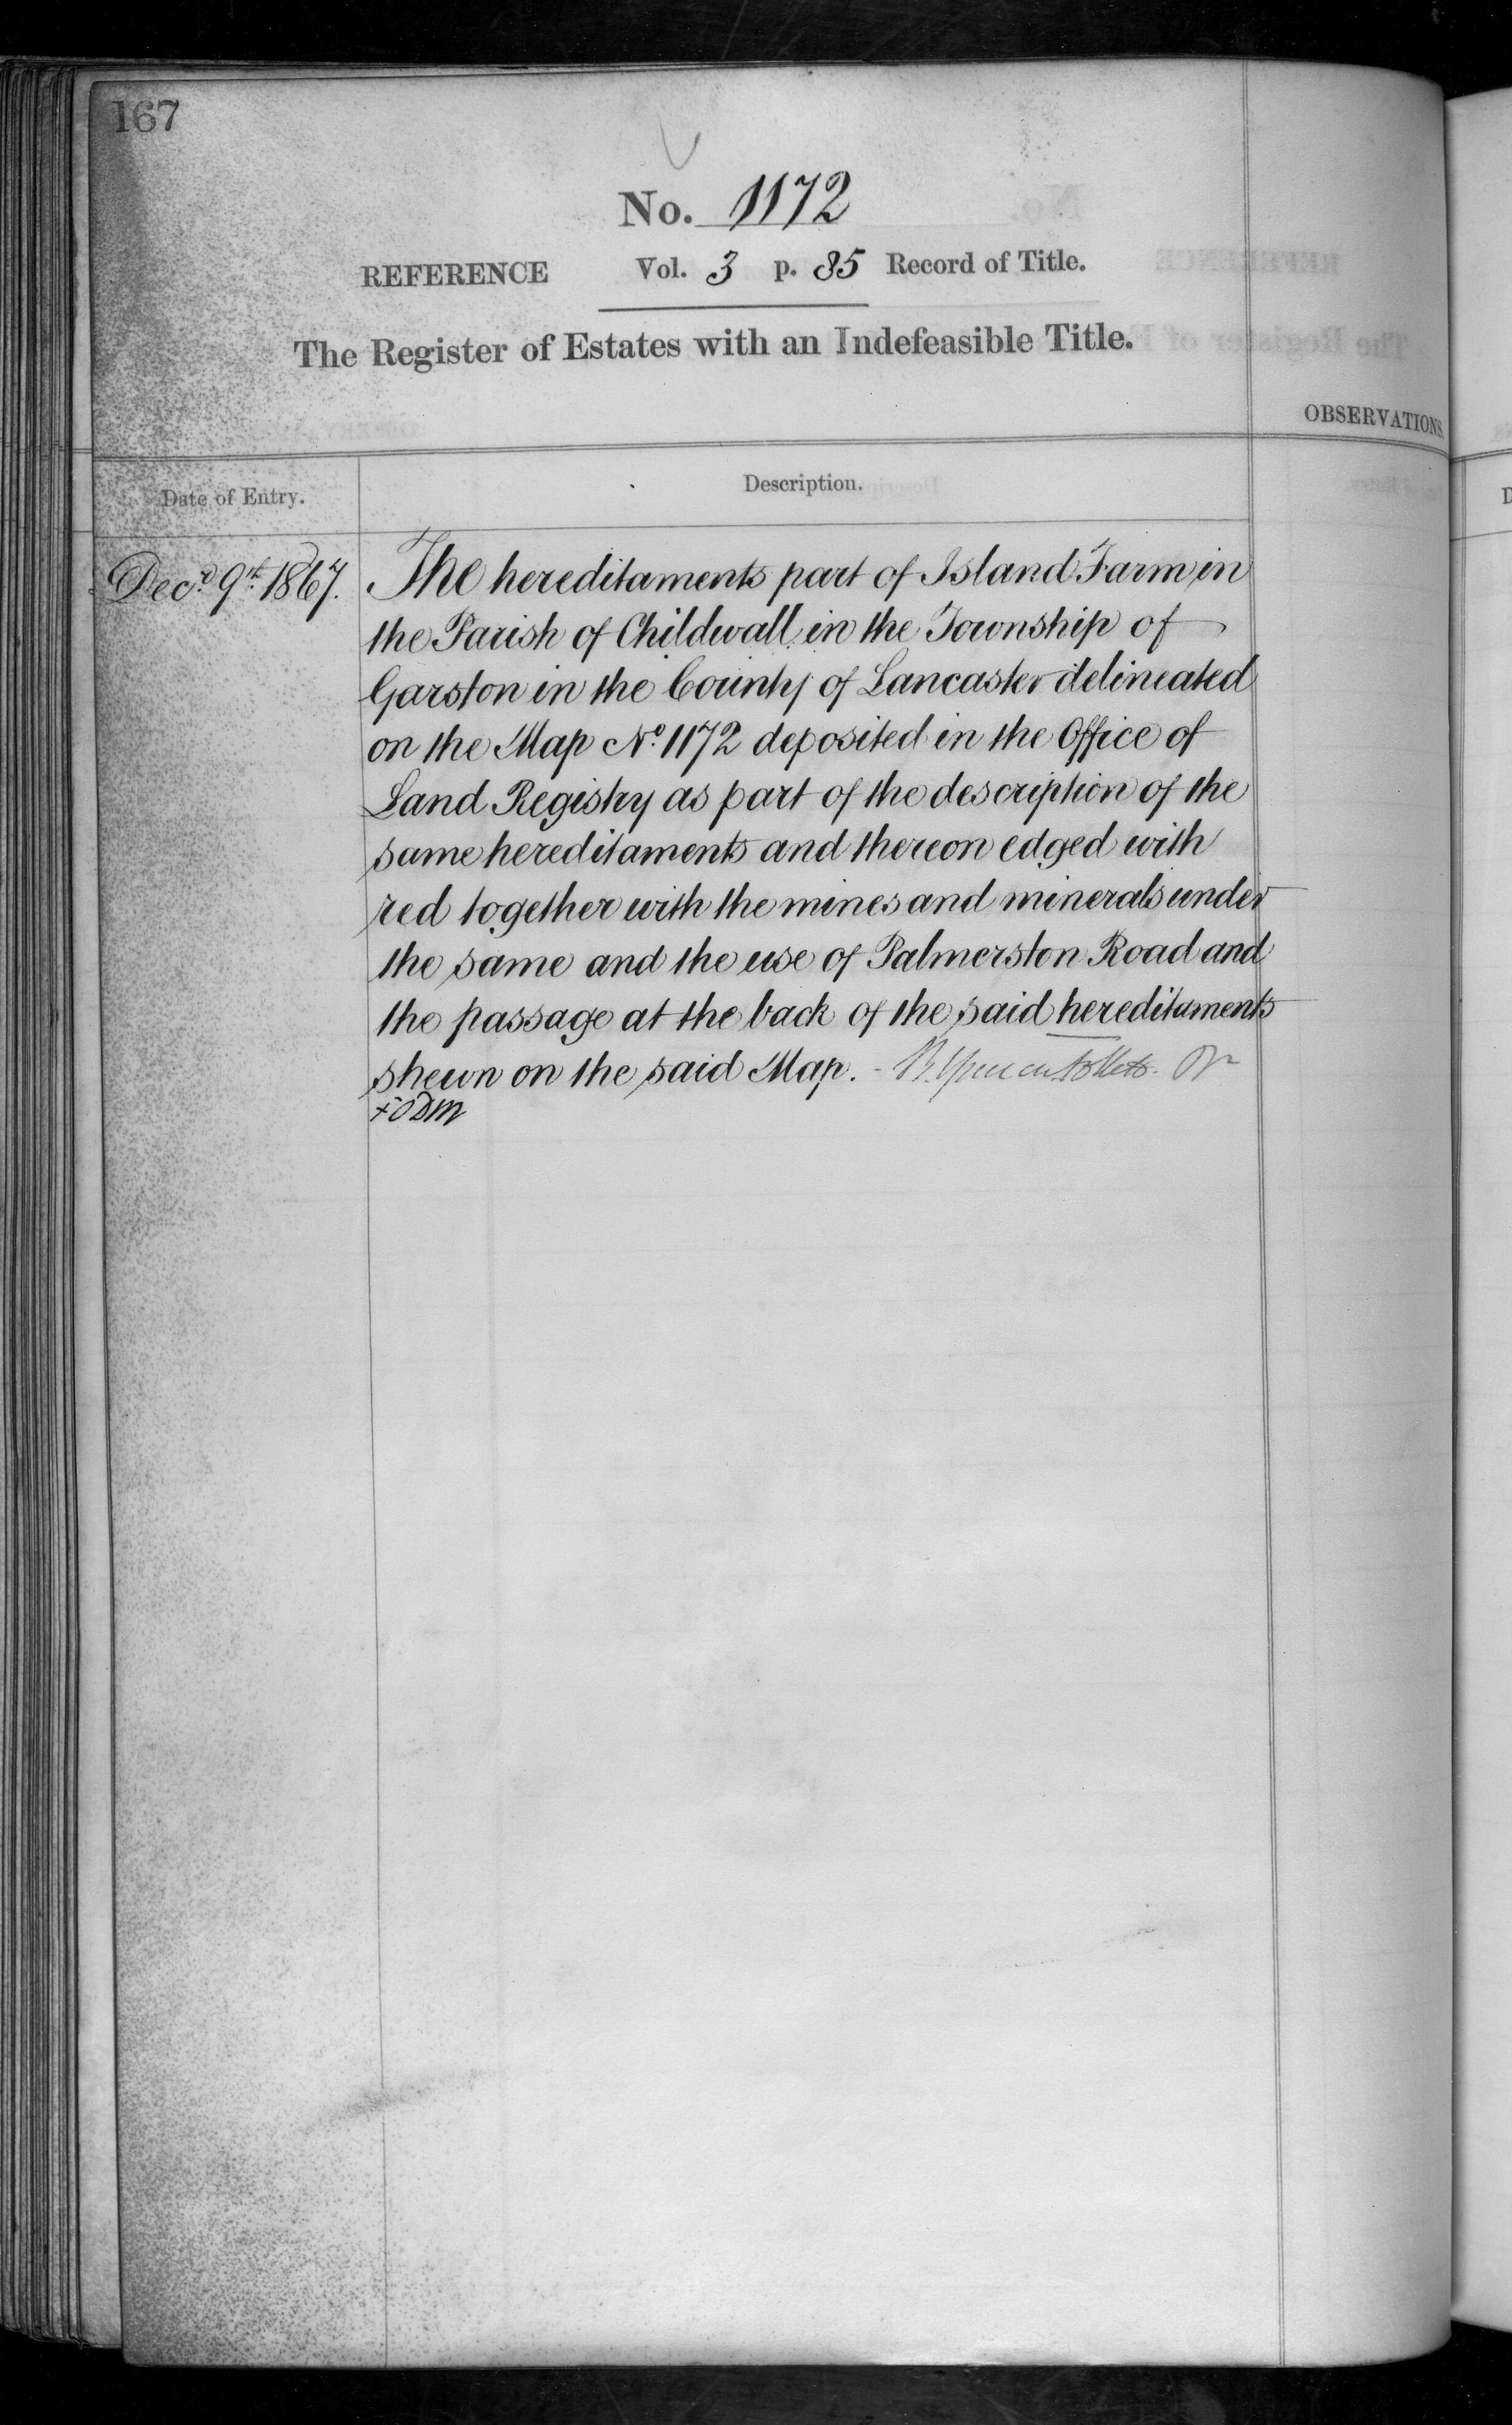 167
No. 1172
REFERENCE Vol. 3 p. 85 Record of Title.
The Register of Estates with an Indefeasible Title.
OBSERVATIONS.
Date of Entry.
Description.
Decr. 9th 1867.
The hereditaments part of Island Farm in
the Parish of Childwall in the Township of
Garston in the County of Lancaster delineated
on the Map No. 1172 deposited in the Office of
Land Registry as part of the description of the
same hereditaments and thereon edged with
red together with the mines and minerals under
the same and the use of Palmerston Road and
the passage at the back of the said hereditaments
shewn on the said Map.